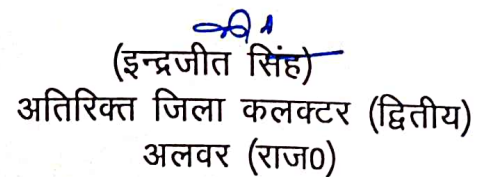 (इन्द्रजीत सिंह)
अतिरिक्त जिला कलक्टर (द्वितीय)
अलवर (राज0)